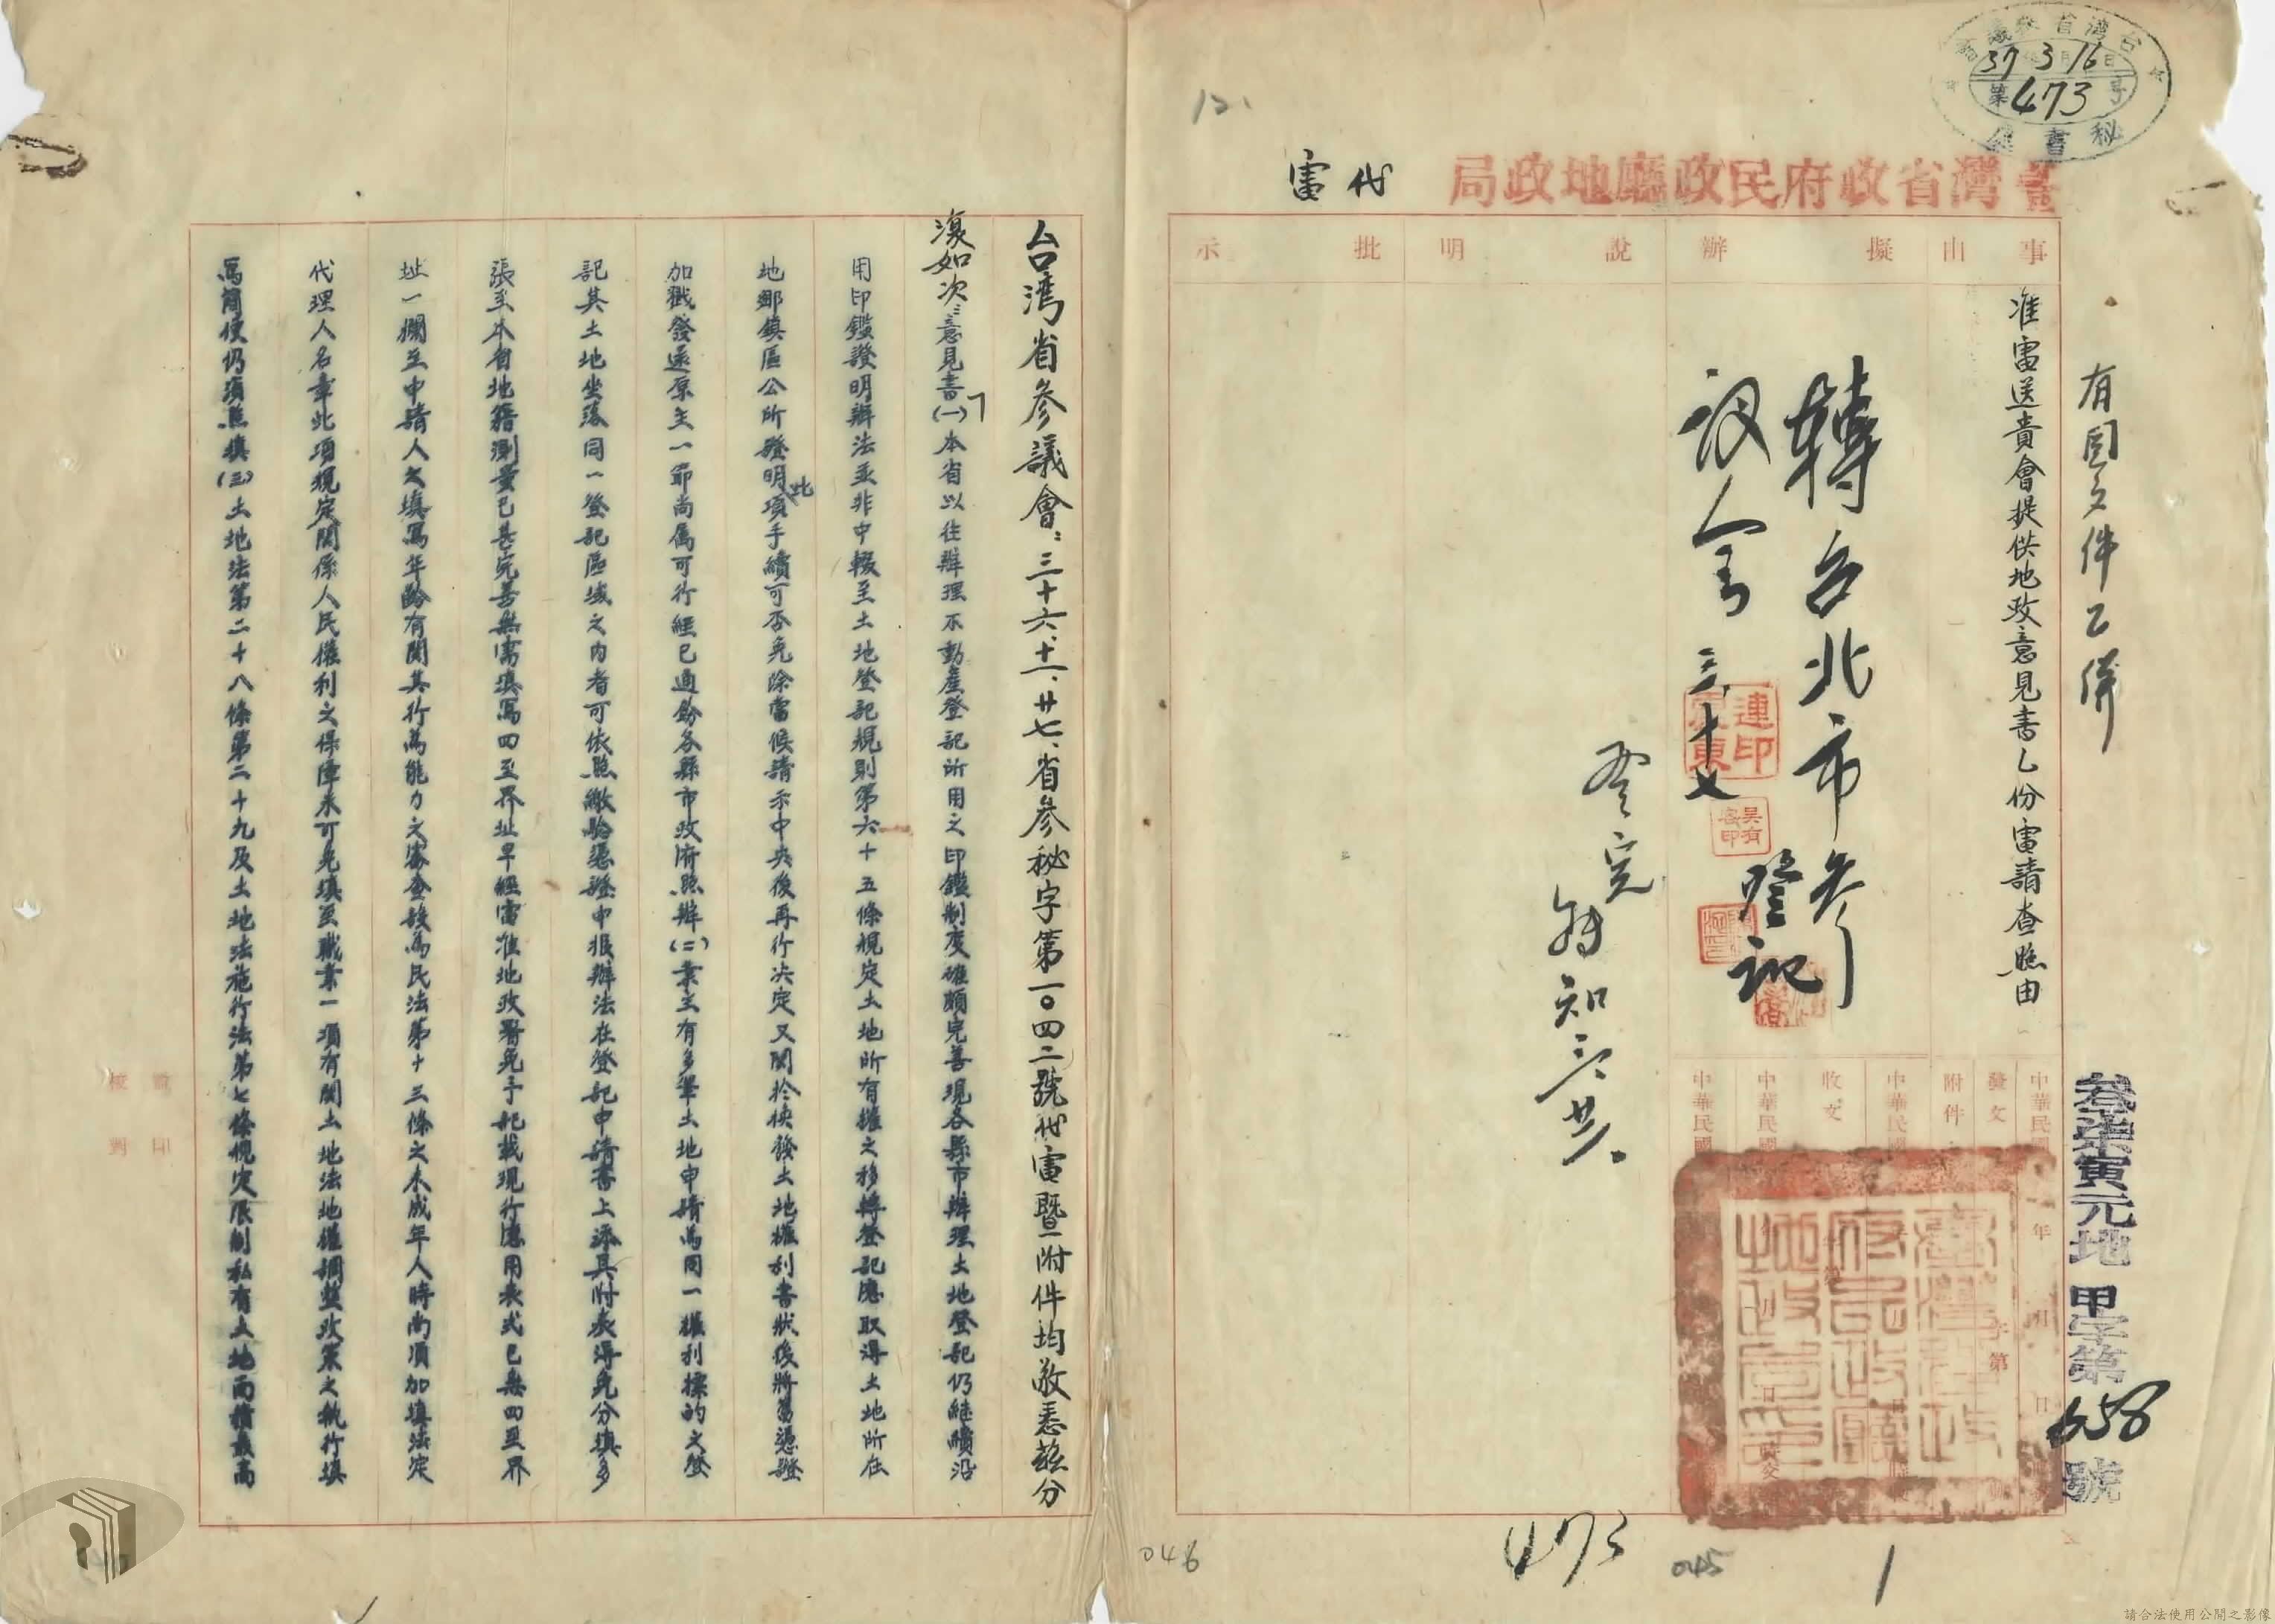 台灣省參議會
37 3 16日
第473号
秘書處
臺灣省政府民政廳地政局
代電
12.
事由
擬辦
說明
批示
有関文件乙併
准電送貴會提供地政意見書乙份電請查照由
轉台北市參
議會
三、十七
登記
連印
吳有
印
登完
知
中華民國 年 月 日
發文 字第
附件
中華民國
收文
中華民國
中華民國
叁柒寅元地甲字第658號
臺灣省政
府民政廳
地政局印
473
045
046
台湾省參議會：三十六、十一、廿七、省參秘字第一〇四二號代電暨附件均敬悉茲分
復如次：意見書(一)本省以往辦理不動產登記所用之印鑑制度確頗完善現各縣市辦理土地登記仍繼續沿
用印鑑證明辦法並非中輟至土地登記規則第六十五條規定土地所有權之移轉登記應取得土地所在
地鄉鎮區公所證明此項手續可否免除當候請示中央後再行決定又関於換發土地權利書狀後將舊憑證
加戳發還原主一節尚属可行經已通飭各縣市政府照辦(二)業主有多筆土地申請為同一權利標的之登
記其土地坐落同一登記區域之內者可依照繳驗憑證申报辦法在登記申請書上添具附表得免分填多
張至本省地籍測量已甚完善無需填寫四至界址早經電准地政署免予記載現行應用表式已無四至界
址一欄至申請人之填寫年齡有関其行為能力之審查該為民法第十三條之未成年人時尚須加填法定
代理人名章此項規定関係人民權利之保障未可免填至職業一項有関土地法地權調整政策之執行填
寫簡便仍須照填(三)土地法第二十八條第二十九及土地法施行法第七條規定限制私有土地面積最高
蓋印
校對
請合法使用公開之影像